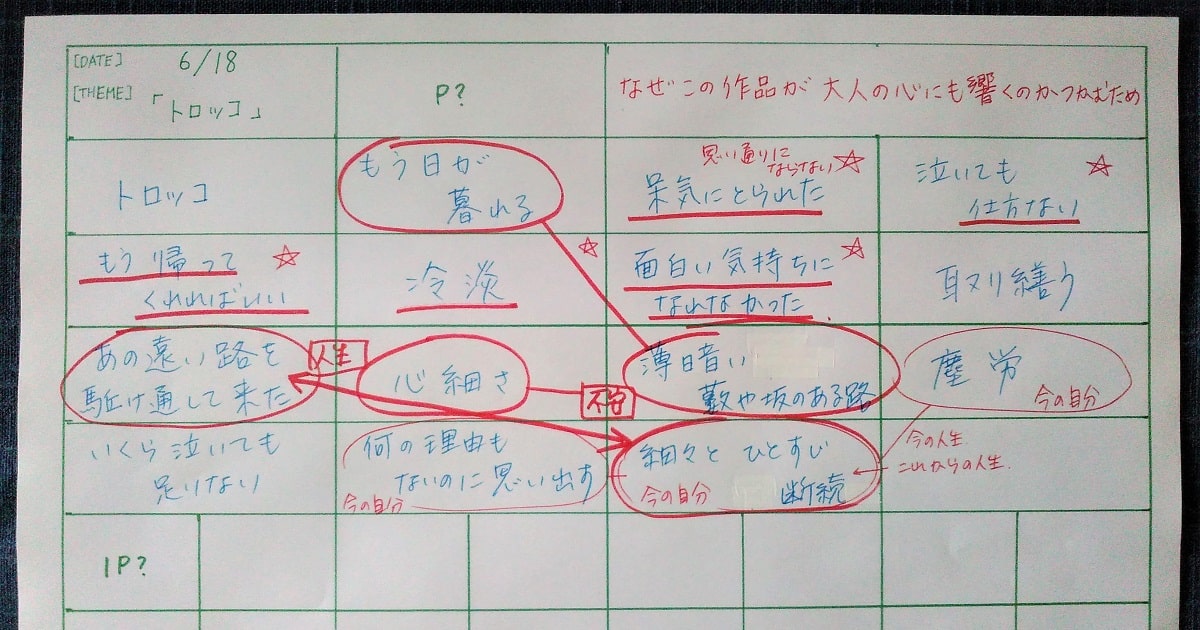 [DATE] 6/18
[THEME] 「トロッコ」
P?
なぜこの作品が大人の心にも響くのかつかむため
トロッコ
もう日が
暮れる
思い通りに
ならない☆
呆気にとられた
泣いても ☆
仕方ない
もう帰って ☆
くれればいい
冷淡 ☆
面白い気持ちに ☆
なれなかった
取り繕う
あの遠い路を
駈け通して来た
人生
心細さ
不安
薄暗い
藪や坂のある路
塵労
今の自分
いくら泣いても
足りない
何の理由も
ないのに思い出す
今の自分
細々とひとすじ
断続
今の自分
今の人生
これからの人生.
1P?